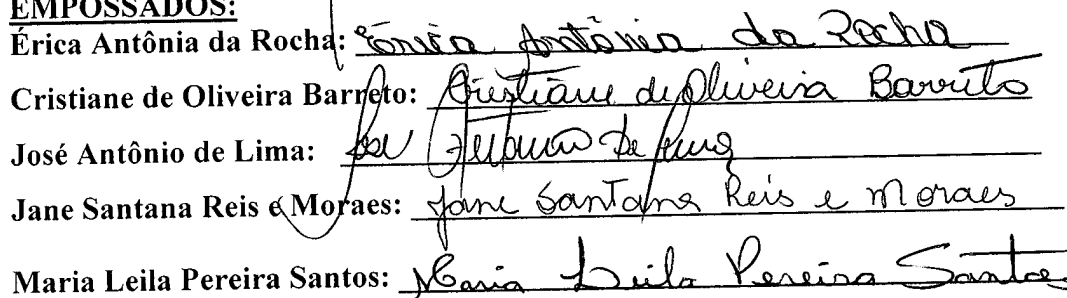 EMPOSSADOS:
Érica Antônia da Rocha: Érica Antônia da Rocha
Cristiane de Oliveira Barreto: Cristiane de Oliveira Barreto
José Antônio de Lima: José Antônio de Lima
Jane Santana Reis e Moraes: Jane Santana Reis e Moraes
Maria Leila Pereira Santos: Maria Leila Pereira Santos